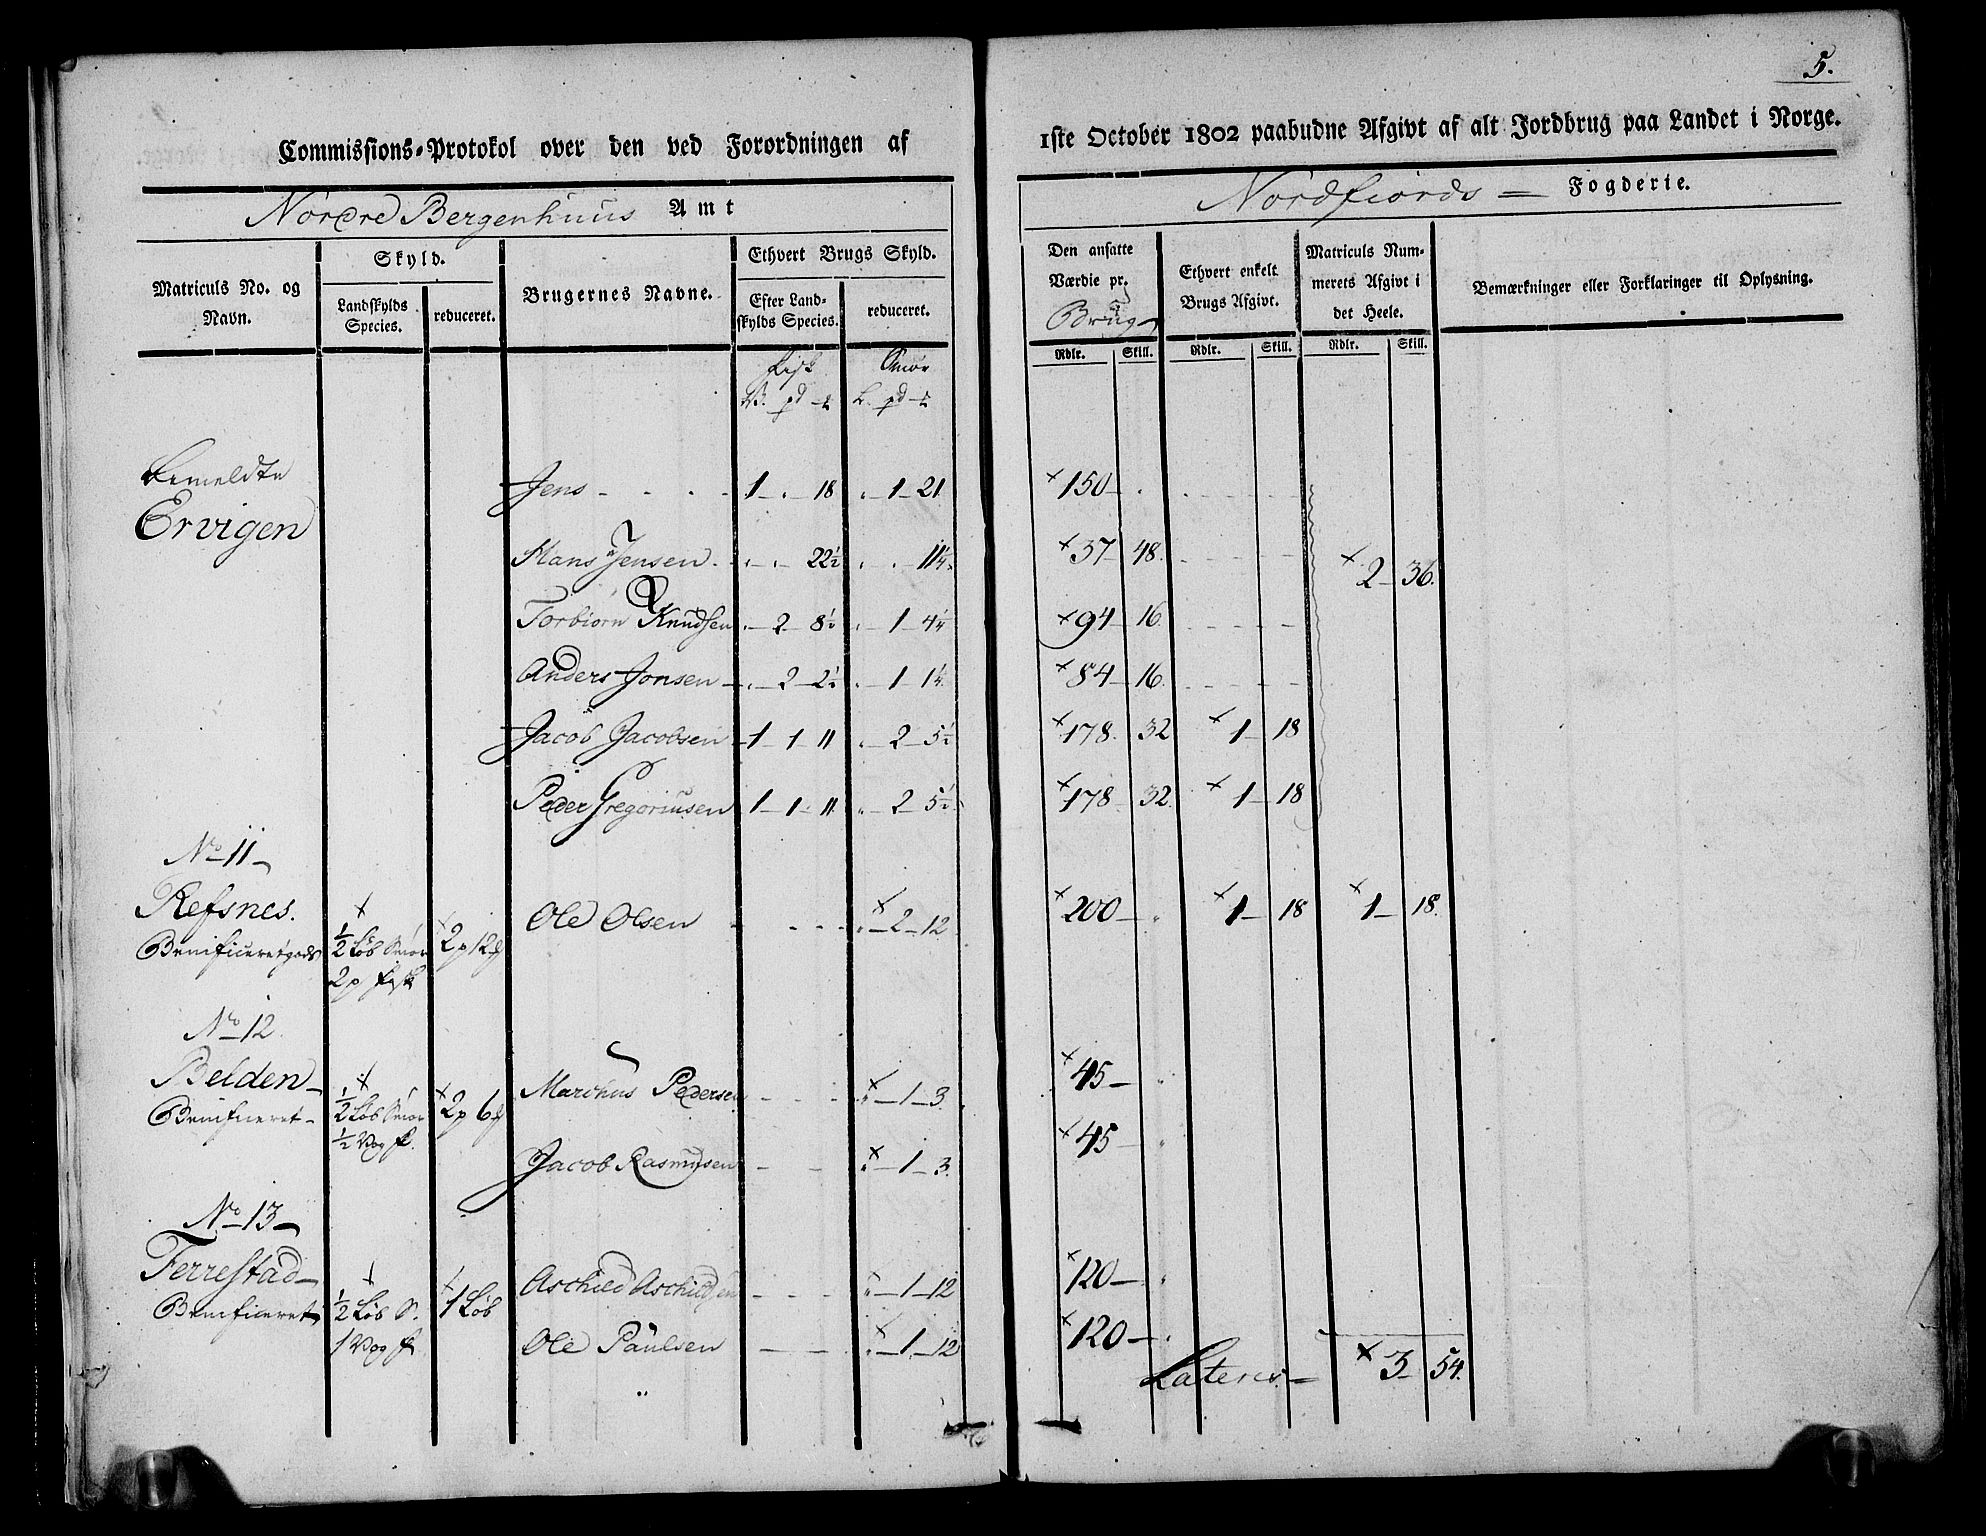 5.
Commissions-Protokol over den ved Forordningen af 1ste October 1802 paabudne Afgivt af alt Jordbrug paa Landet i Norge.
Nordre Bergenhuus Amt
Nordfiords Fogderie.
Matriculs No. og Navn.
Skyld.
Landskylds Species.
reduceret.
Brugernes Navne.
Ethvert Brugs Skyld.
Efter Landskylds Species.
reduceret.
Den ansatte Værdie pr. Brug
Ethvert enkelt Brugs Afgivt.
Matriculs Nummerets Afgivt i det Heele.
Bemærkninger eller Forklaringer til Oplysning.
Rdlr. Skill. Rdlr. Skill. Rdlr. Skill.
Fisk Smør
V. pd L. pd
Bemeldte
Ervigen
Jens 1 - " - 18 " - 1 - 21 × 150 - "
Hans Jensen " - " - 22½ " - " - 11¼ × 37 - 48. × 2 - 36.
Torbiörn Knudsen " - 2 - 8½ " - 1 - 4¼ × 94 - 16.
Anders Jonsen " - 2 - 2½ " - 1 - 1¼ × 84 - 16.
Jacob Jacobsen 1 - 1 - 11 " - 2 - 5½ × 178. 32 × 1 - 18
Peder Gregoriusen 1 - 1 - 11 " - 2 - 5½ × 178 - 32. × 1 - 18
No 11
Refsnes.
Benificeret gods
× ½ Løb Smør
2 p fisk
× 2 p 12
Ole Olsen × " - 2 - 12 × 200 - " × 1 - 18 × 1 - 18.
No 12
Belden
Benificeret
× ½ Løb Smør
½ Vog f.
× 2 p 6
Marchus Pedersen × " - 1 - 3. × 45 - "
Jacob Rasmusen × " - 1 - 3. × 45 - "
No 13
Ferrestad
Benificeret
× ½ Løb S.
1 Vog f
× 1 Løb
Aschild Aschildsen × " - 1 - 12 × 120 - "
Ole Paulsen × " - 1 - 12 × 120 - "
Lateris × 3 - 54.